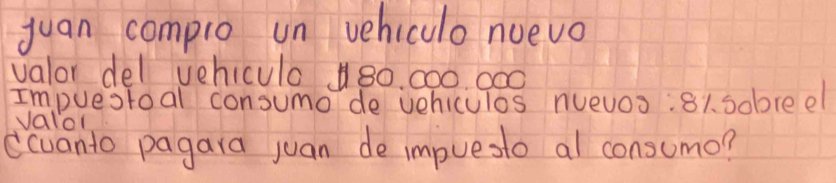 Juan compro un vehiculo nuevo
valor del vehiculo $80.000.000
Impuesto al consumo de vehiculos nuevos : 8% sobre el
valor
¿cuanto pagara juan de impuesto al consumo?